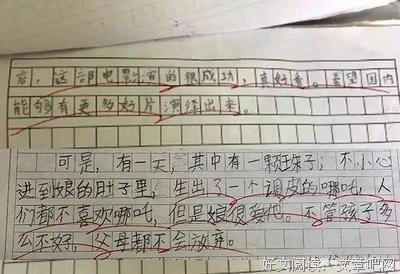 后，这部电影演的很成功，真好看。希望国内
能够有更多好片演绎出来。
可是，有一天，其中有一颗珠子；不小心
进到娘的肚子里，生出了一个调皮的哪吒，人
们都不喜欢哪吒，但是娘很爱他。不管孩子多
么不好，父母都不会放弃。